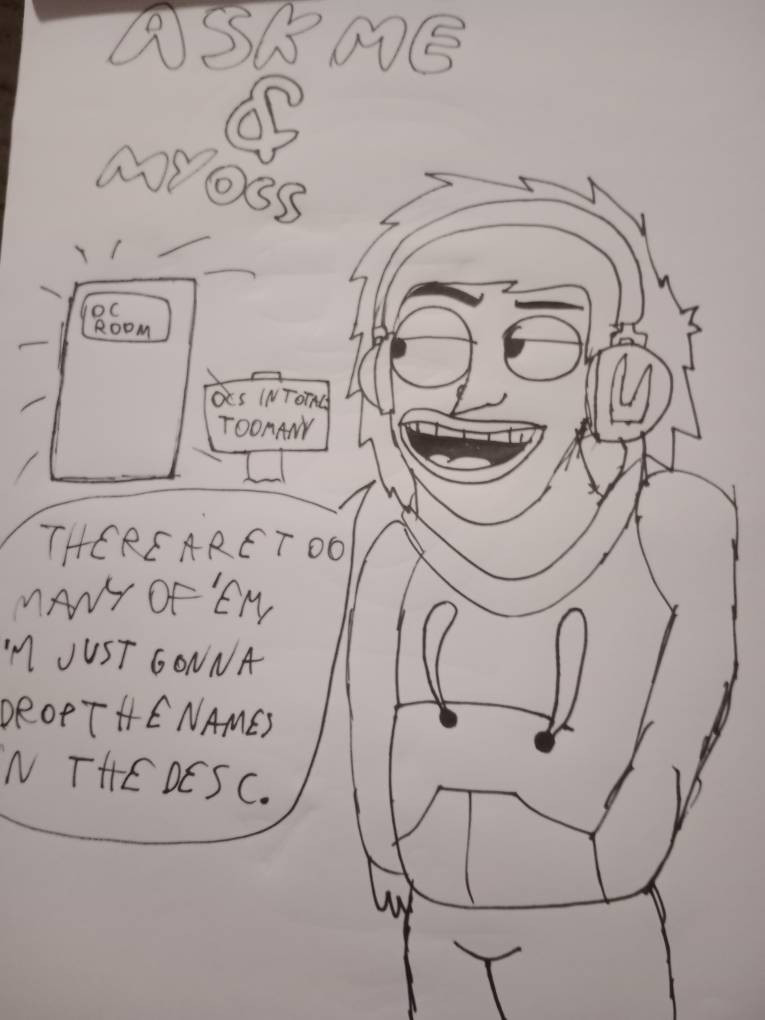 ASK ME
&
MY OCS
OC
ROOM
OCS IN TOTAL:
TOO MANY
THERE ARE TOO
MANY OF 'EM,
'M JUST GONNA
DROP THE NAMES
'N THE DESC.
U